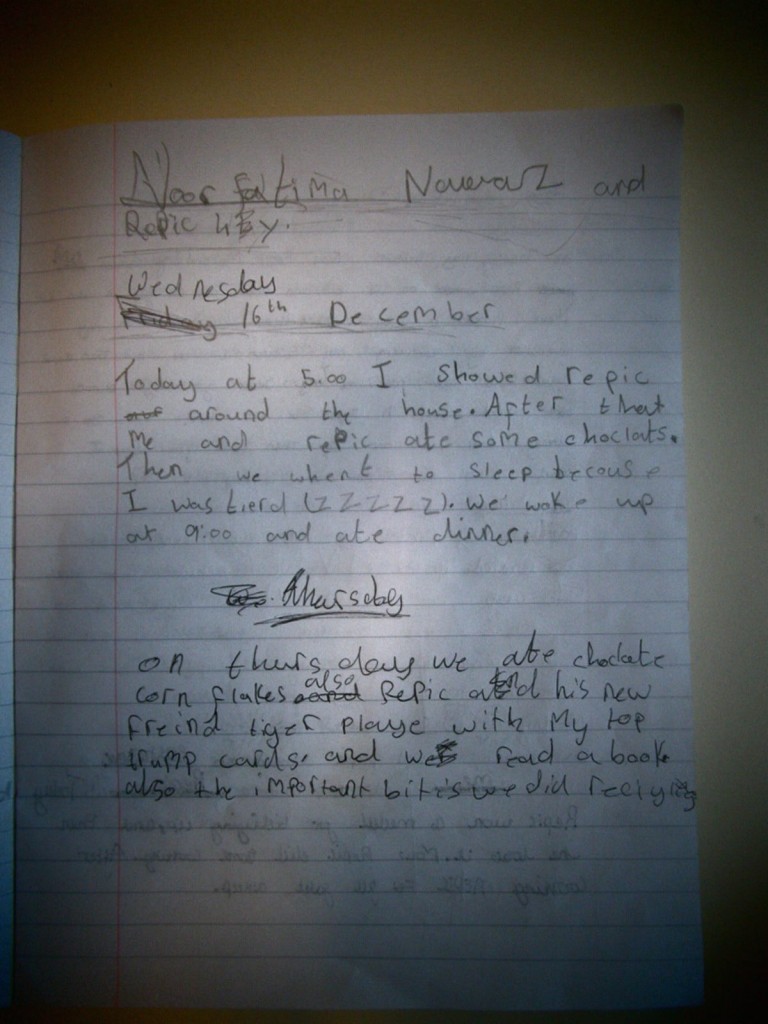 Noor fatima Nawaz and
Repic
Wednesday
16th December
Today at 5.00 I showed repic
around the house. After that
me and repic ate some choclats.
Then we whent to sleep because
I was tierd (ZZZZZ). We woke up
at 9:00 and ate dinner.
thursday
on thursday we ate choclate
corn flakes also Repic and his new
freind tiger playe with my top
trump cards. and we read a book
also the important bit is we did